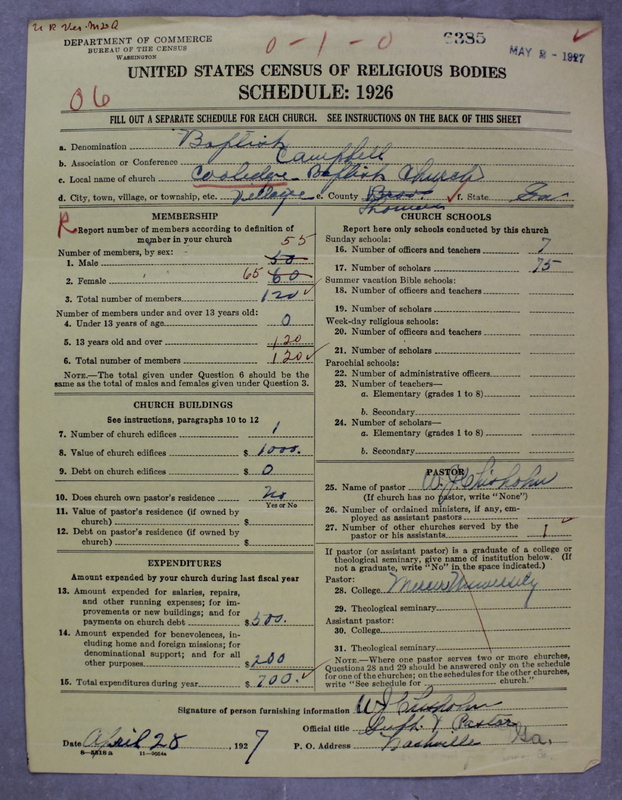 DEPARTMENT OF COMMERCE
BUREAU OF THE CENSUS
WASHINGTON
0-1-0
6385
MAY 2 - 1927
06
UNITED STATES CENSUS OF RELIGIOUS BODIES
SCHEDULE: 1926
FILL OUT A SEPARATE SCHEDULE FOR EACH CHURCH. SEE INSTRUCTIONS ON THE BACK OF THIS SHEET
a. Denomination Baptist
b. Association or Conference Campbell
c. Local name of church Coolidge Baptist Church
d. City, town, village, or township, etc. Village e. County Thomas f. State Ga
MEMBERSHIP
R
Report number of members according to definition of
member in your church
Number of members, by sex:
1. Male 50 55
2. Female 65 60
3. Total number of members 120
Number of members under and over 13 years old:
4. Under 13 years of age 0
5. 13 years old and over 120
6. Total number of members 120
NOTE.—The total given under Question 6 should be
same as the total of males and females given under Question 3.
CHURCH BUILDINGS
See instructions, paragraphs 10 to 12
7. Number of church edifices 1
8. Value of church edifices $ 1000.
9. Debt on church edifices $ 0
10. Does church own pastor's residence No
Yes or No
11. Value of pastor's residence (if owned by
church) $
12. Debt on pastor's residence (if owned by
church) $
EXPENDITURES
Amount expended by your church during last fiscal year
13. Amount expended for salaries, repairs,
and other running expenses; for im-
provements or new buildings; and for
payments on church debt $ 500.
14. Amount expended for benevolences, in-
cluding home and foreign missions; for
denominational support; and for all
other purposes $ 200
15. Total expenditures during year $ 700.
CHURCH SCHOOLS
Report here only schools conducted by this church
Sunday schools:
16. Number of officers and teachers 7
17. Number of scholars 75
Summer vacation Bible schools:
18. Number of officers and teachers
19. Number of scholars
Week-day religious schools:
20. Number of officers and teachers
21. Number of scholars
Parochial schools:
22. Number of administrative officers
23. Number of teachers—
a. Elementary (grades 1 to 8)
b. Secondary
24. Number of scholars—
a. Elementary (grades 1 to 8)
b. Secondary
PASTOR
25. Name of pastor W J Chisholm
(If church has no pastor, write "None")
26. Number of ordained ministers, if any, em-
ployed as assistant pastors
27. Number of other churches served by the
pastor or his assistants 1
If pastor (or assistant pastor) is a graduate of a college or
theological seminary, give name of institution below. (If
not a graduate, write "No" in the space indicated.)
Pastor:
28. College Mercer University
29. Theological seminary
Assistant pastor:
30. College
31. Theological seminary
NOTE.—Where one pastor serves two or more churches,
Questions 28 and 29 should be answered only on the schedule
for one of the churches; on the schedules for the other churches,
write "See schedule for church."
Signature of person furnishing information W J Chisholm
Official title Supt & Pastor
Date April 28, 1927 P. O. Address Nashville Ga.